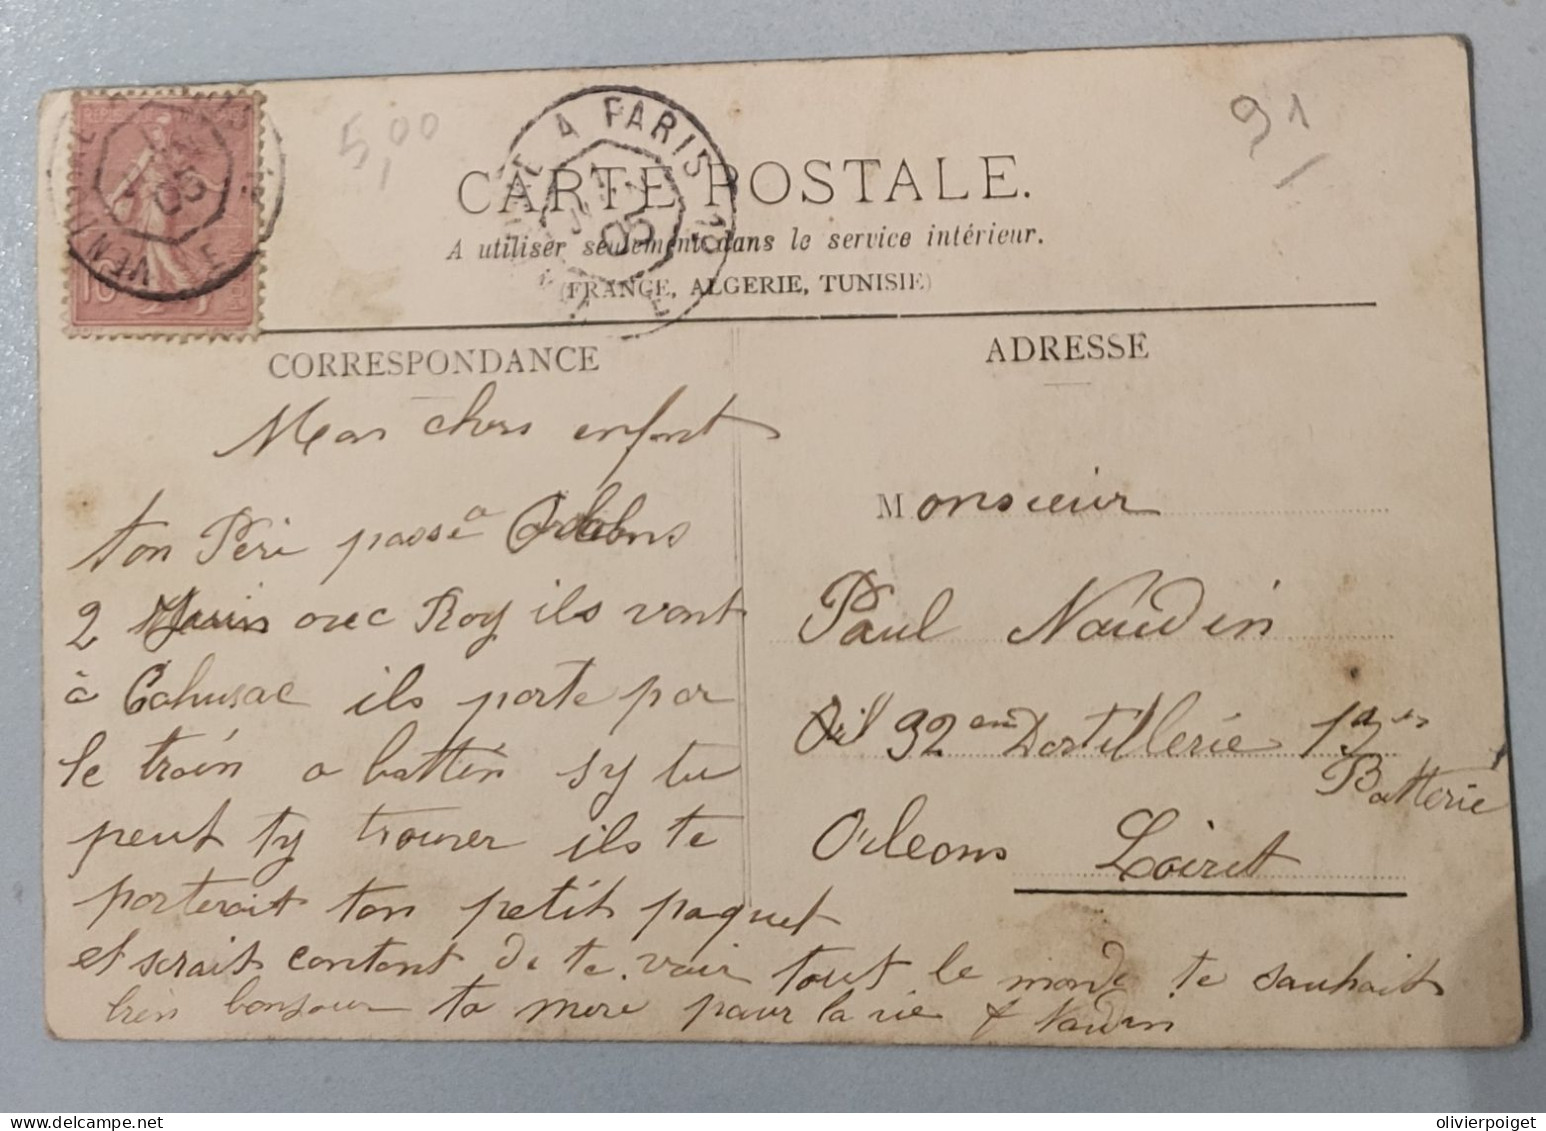 5,00
91
A PARIS
05
CARTE POSTALE.
A utiliser seulement dans le service intérieur.
(FRANCE, ALGERIE, TUNISIE)
CORRESPONDANCE
ADRESSE
Mon chers enfant
ton Peri passé a
2 Juin avec Roy ils vont
à Cahusac ils porte par
le train a battin sy tu
peut ty trouver ils te
porterait ton petit paquet
et serait contant de te voir tout le monde te sauhait
bien bonjour ta mere pour la vie f Naudin
Monsieur
Paul Naudin
32 em Dartillerie 17
Batterie
Orleans Loiret
olivierpoiget